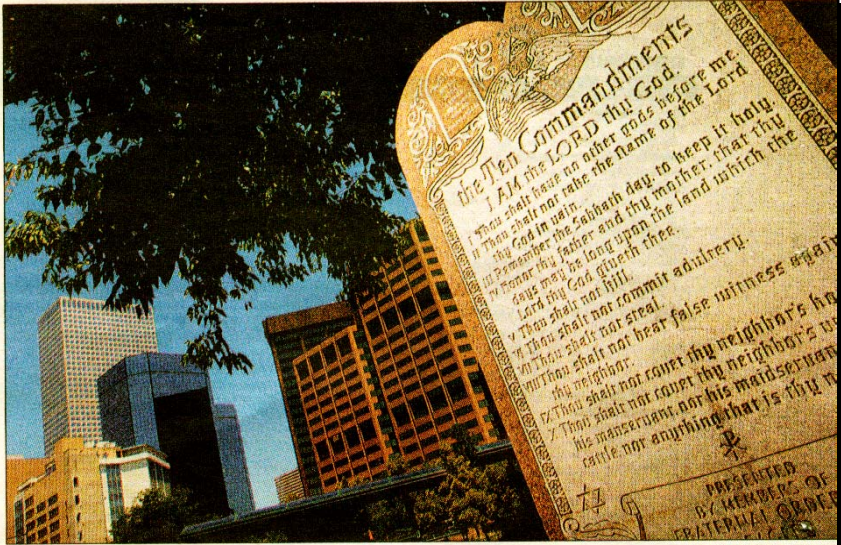 the Ten Commandments
I AM the LORD thy God.
I Thou shalt have no other gods before me
Thou shalt not take the Name of the Lord
thy God in vain.
Remember the Sabbath day, to keep it holy.
IV Honor thy father and thy mother, that thy
days may be long upon the land which the
Lord thy God giveth thee.
Thou shalt not kill.
VI Thou shalt not commit adultery.
VII Thou shalt not steal.
VIII Thou shalt not bear false witness again
thy neighbor.
IX Thou shalt not covet thy neighbor's ho
X Thou shalt not covet thy neighbor's
his manservant, nor his maidservan
cattle nor anything that is thy n
PRESENTED
BY MEMBERS OF
FRATERNAL ORDER